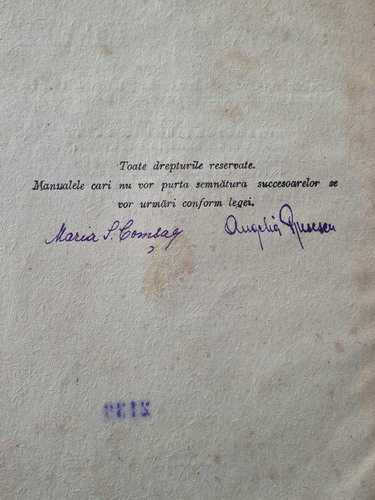 Toate drepturile reservate.
Manualele cari nu vor purta semnătura succesoarelor se
vor urmări conform legei.
Maria S. Comșag